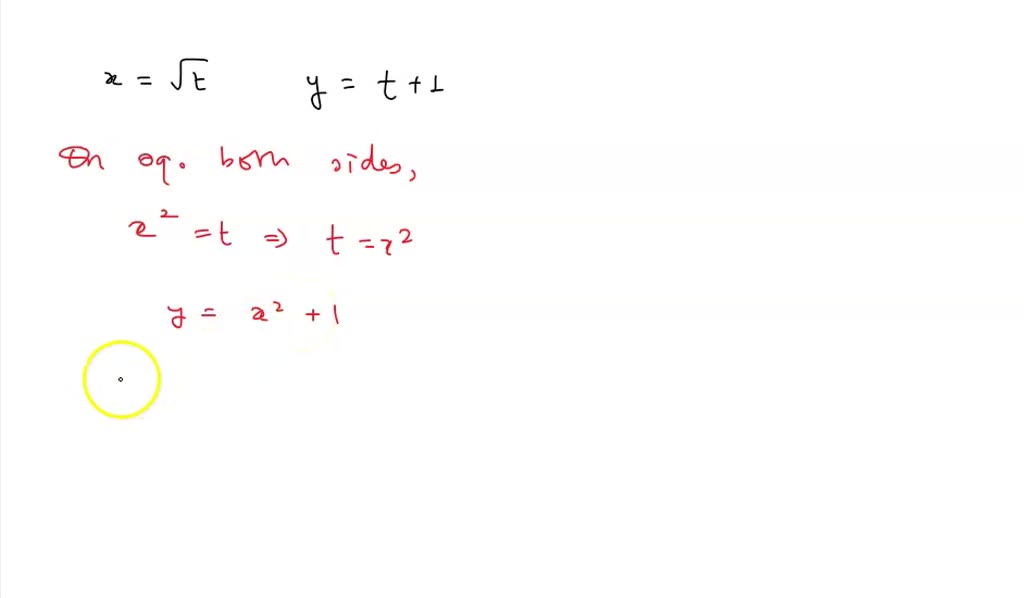 x = √t y = t + 1
On sq. both sides,
x² = t ⇒ t = x²
y = x² + 1